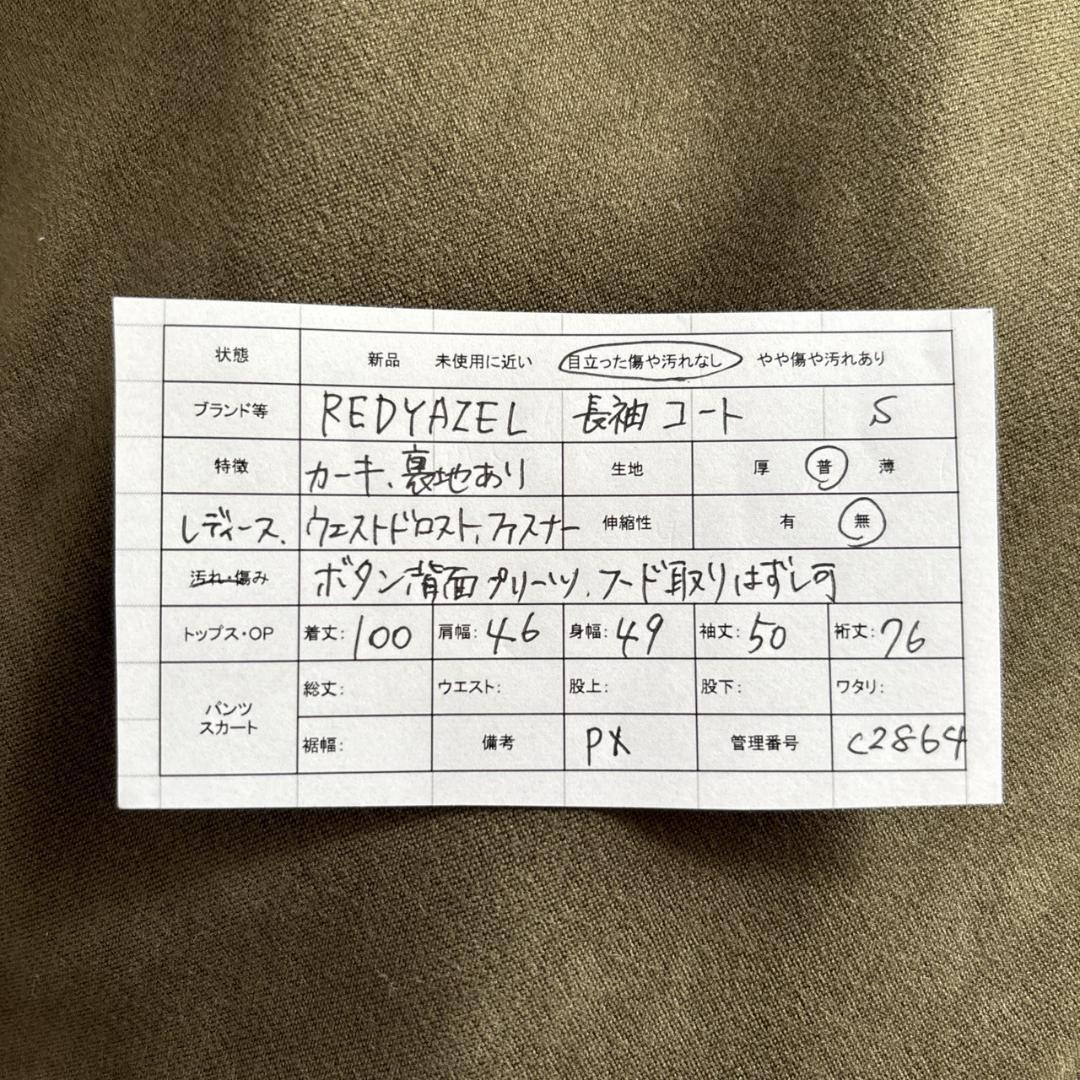 状態 新品 未使用に近い 目立った傷や汚れなし やや傷や汚れあり
ブランド等 REDYAZEL 長袖 コート S
特徴 カーキ、裏地あり 生地 厚 普 薄
レディース、ウエストドロスト、ファスナー 伸縮性 有 無
汚れ・傷み ボタン背面プリーツ、フード取りはずし可
トップス・OP 着丈: 100 肩幅: 46 身幅: 49 袖丈: 50 裄丈: 76
パンツ スカート 総丈: ウエスト: 股上: 股下: ワタリ:
裾幅: 備考 PX 管理番号 C2864